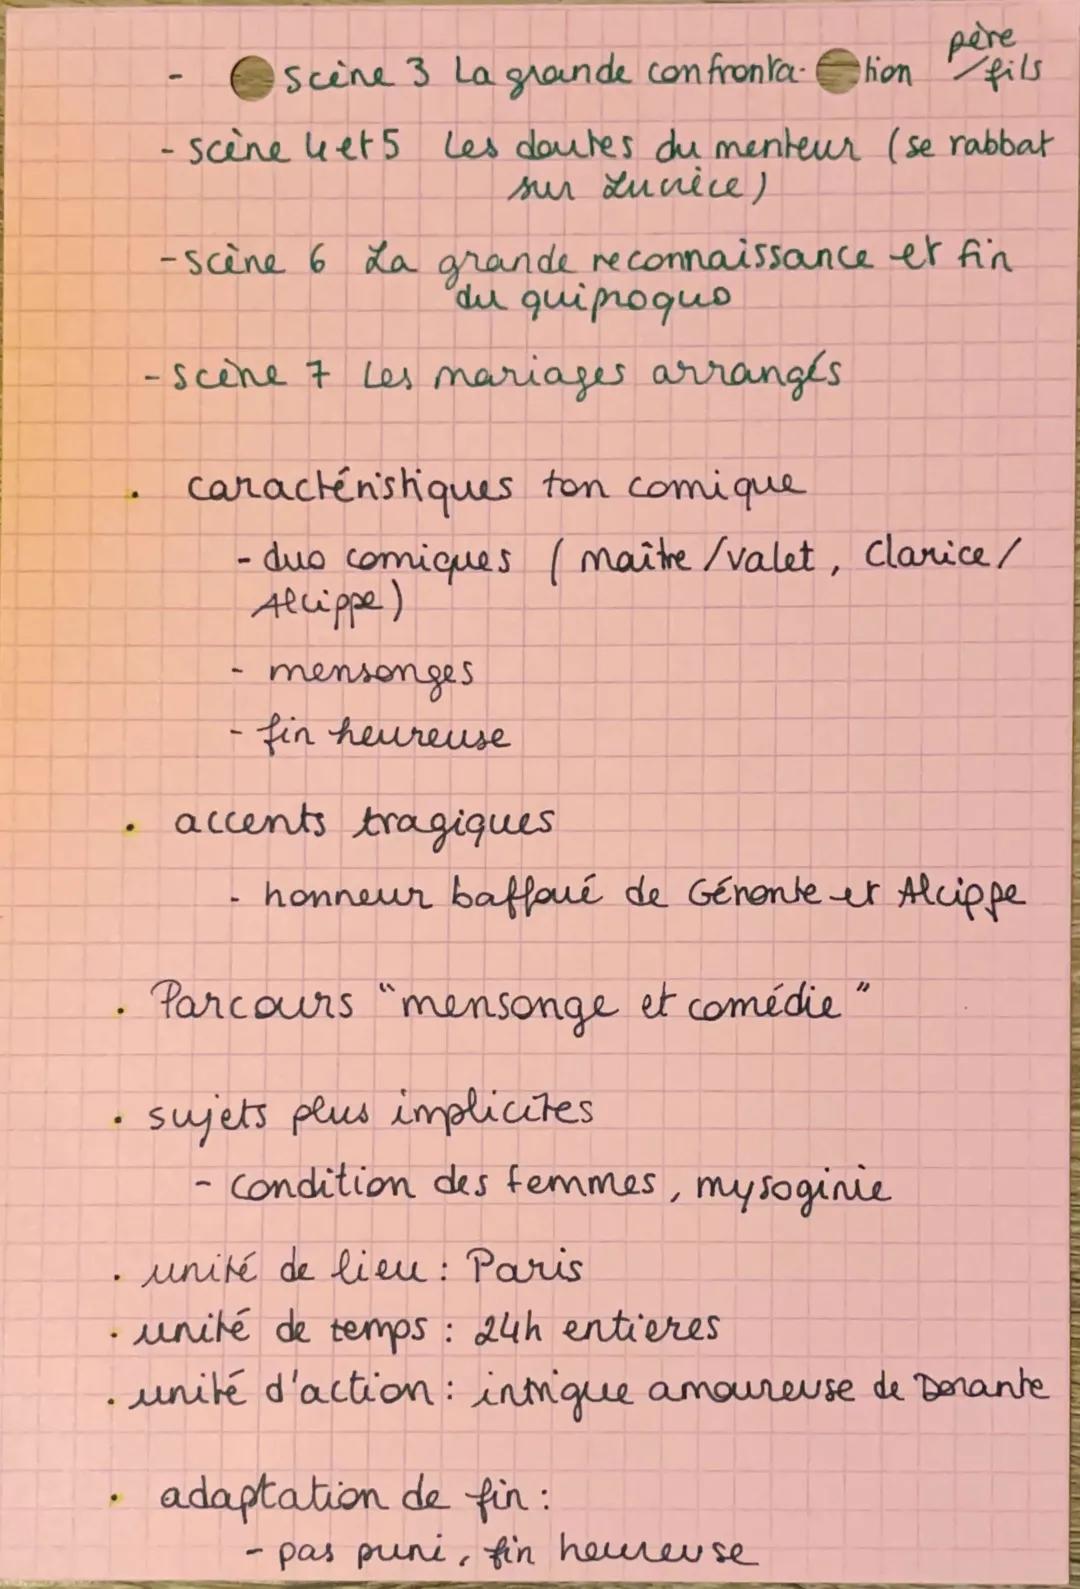 père
- scène 3 La grande confronta- tion / fils
- scène 4 et 5 Les doutes du menteur (se rabbat
sur Lucrèce)
- scène 6 La grande reconnaissance et fin
du quiproquo
- scène 7 Les mariages arrangés
. caractéristiques ton comique
- duo comiques (maître/valet, Clarice/
Alcippe)
- mensonges
- fin heureuse
. accents tragiques
- honneur baffoué de Géronte et Alcippe
. Parcours "mensonge et comédie"
. sujets plus implicites
- condition des femmes, mysoginie
. unité de lieu : Paris
. unité de temps : 24h entieres
. unité d'action : intrigue amoureuse de Dorante
. adaptation de fin :
- pas puni, fin heureuse